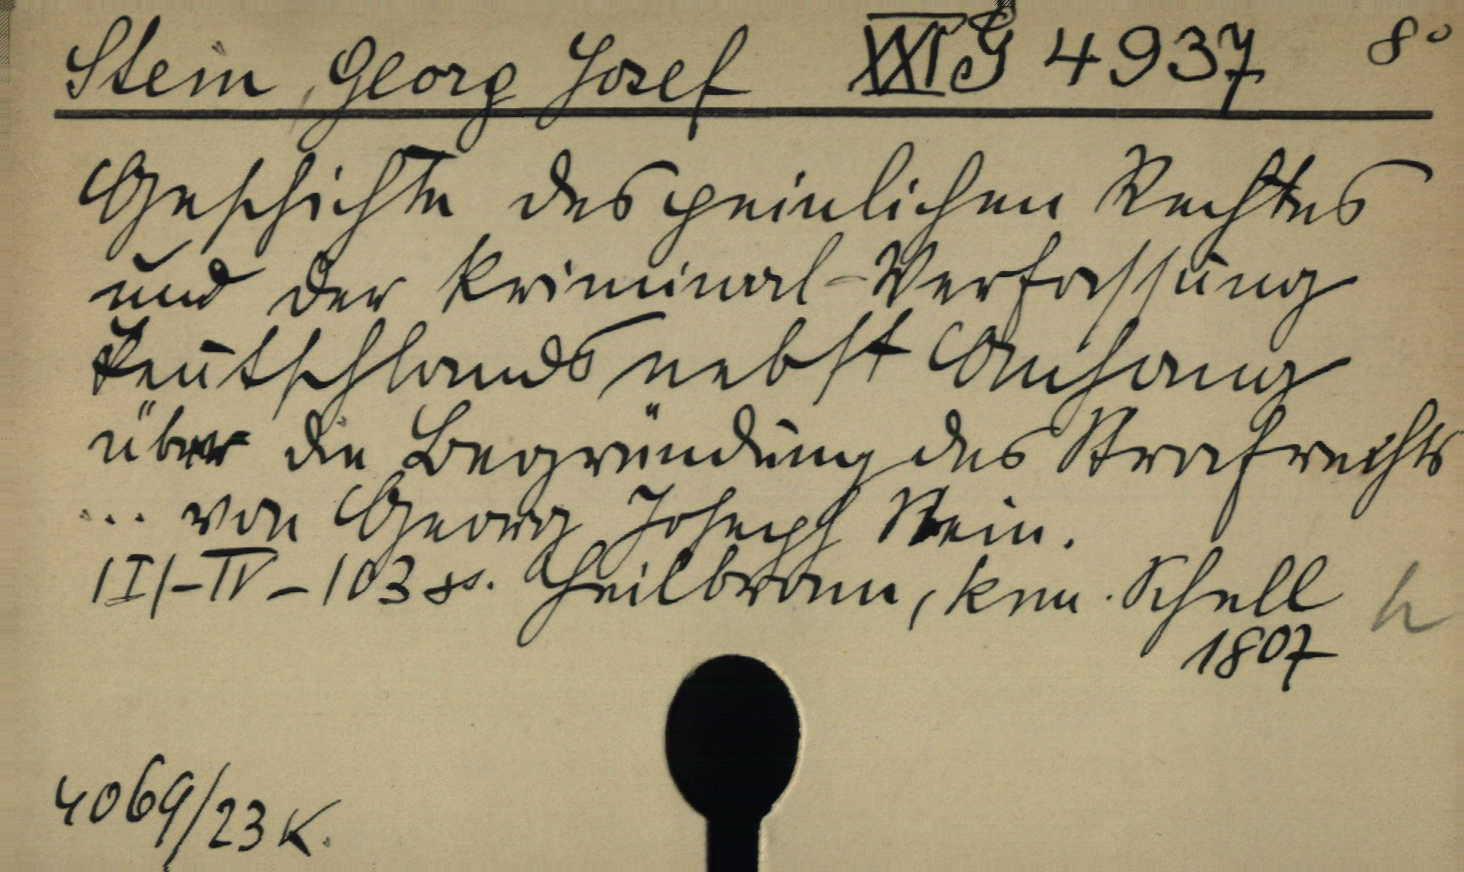 Stein, Georg Josef XXI G 4937 8°
Geschichte des peinlichen Rechtes
und der Kriminal-Verfassung
Teutschlands nebst Anhang
über die Begründung des Strafrechts
... von Georg Joseph Stein.
|I|-IV-103 ss. Heilbronn, Schell
1807
4069/23 K.